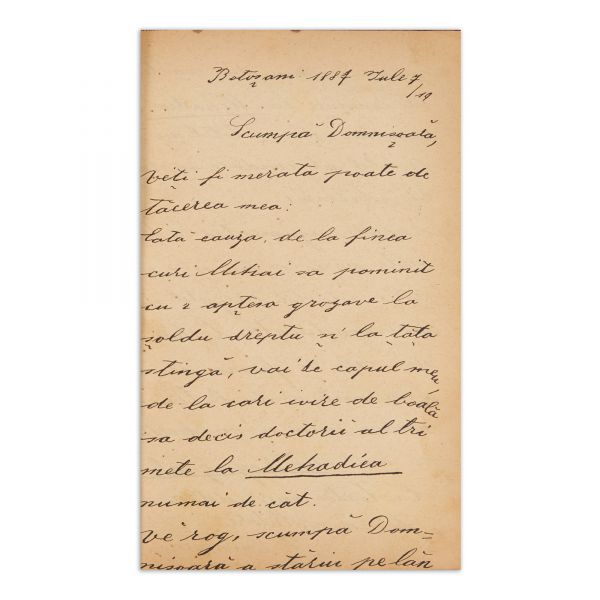 Botoșani 1887 Iulie 7
/19
Scumpă Domnișoară,
Veti fi merata poate de
tăcerea mea:
Iată cauza, de la finea
curi Mihai sa pominit
cu 2 aptese grozave la
șoldu dreptu și la tâta
stingă, vai de capul meu,
de la cari ivire de boală
sa decis doctorii al tri
mete la Mehadiea
numai de cât.
Vĕ rog, scumpă Dom=
nișoară a stărui pe lăn